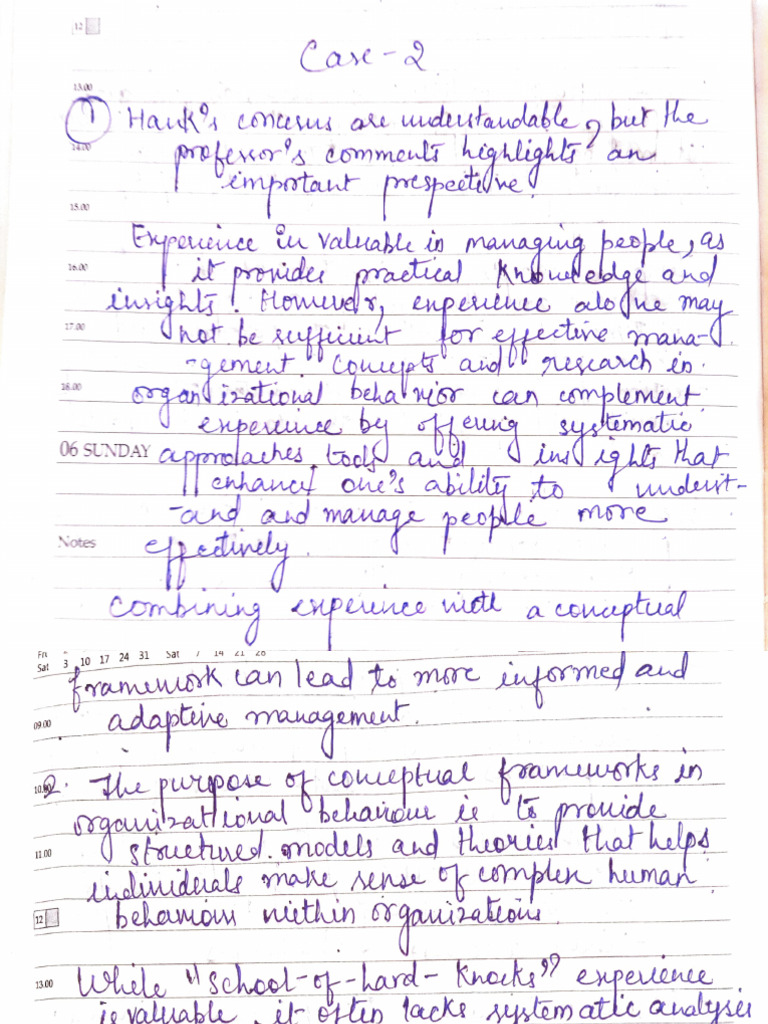 12
Case-2
13.00
1 Hank's concerns are understandable, but the
14.00
professor's comments highlights an
important prespective.
15.00
Experience in valuable in managing people, as
16.00 it provides practical knowledge and
insights. However, experience alone may
17.00 not be sufficient for effective mana-
-gement. Concepts and research in
18.00 organizational behavior can complement
experience by offering systematic
06 SUNDAY approaches, tools and insights that
enhance one's ability to underst-
-and and manage people more
Notes effectively.
Combining experience with a conceptual
Fri Sat 7 14 21 28
Sat 3 10 17 24 31
framework can lead to more informed and
09.00 adaptive management.
10.00 2. The purpose of conceptual frameworks in
organizational behaviour is to provide
11.00 structured models and theories that helps
individuals make sense of complex human
12 behaviour within organizations.
13.00 While "school-of-hard-knocks" experience
is valuable, it often lacks systematic analysis